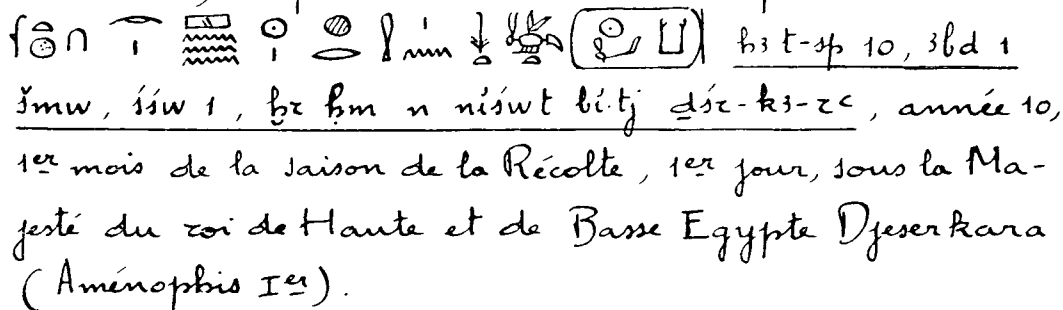 ḥꜣt-sp 10, ꜣbd 1
šmw, śśw 1, ḫr ḥm n niśwt bi.tj ḏśr-kꜣ-rꜥ, année 10,
1er mois de la saison de la Récolte, 1er jour, sous la Ma-
jesté du roi de Haute et de Basse Egypte Djeserkara
(Aménophis Ier).